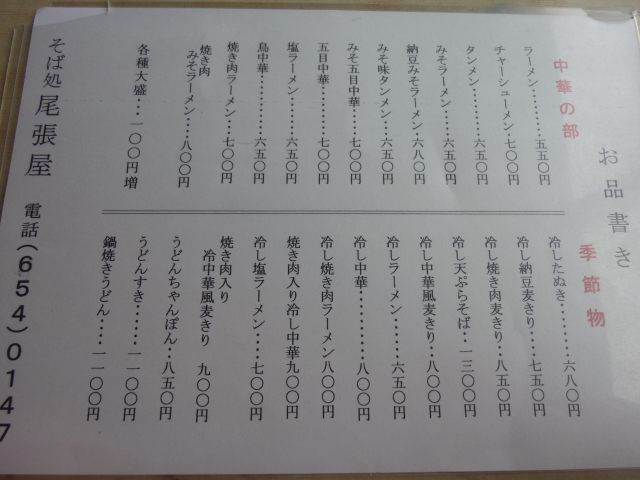 お品書き
中華の部
ラーメン・・・・・・・・五五〇円
チャーシューメン・七〇〇円
タンメン・・・・・・・・六五〇円
みそラーメン・・・・六五〇円
納豆みそラーメン・六八〇円
みそ味タンメン・・六五〇円
みそ五目中華・・・・七〇〇円
五目中華・・・・・・・・七〇〇円
塩ラーメン・・・・・・六五〇円
鳥中華・・・・・・・・・・六五〇円
焼き肉ラーメン・・七〇〇円
焼き肉
みそラーメン・・・八〇〇円
各種大盛・・・一〇〇円増
季節物
冷したぬき・・・・・・・六八〇円
冷し納豆麦きり・・・七五〇円
冷し焼き肉麦きり・・八五〇円
冷し天ぷらそば・・一三〇〇円
冷し中華風麦きり・・八〇〇円
冷しラーメン・・・・・六五〇円
冷し中華・・・・・・・・・八〇〇円
冷し焼き肉ラーメン八〇〇円
焼き肉入り冷し中華九〇〇円
冷し塩ラーメン・・・・七〇〇円
焼き肉入り
冷中華風麦きり 九〇〇円
うどんちゃんぽん・・八五〇円
うどんすき・・・・・・一一〇〇円
鍋焼きうどん・・・・一一〇〇円
そば処 尾張屋 電話(654)0147